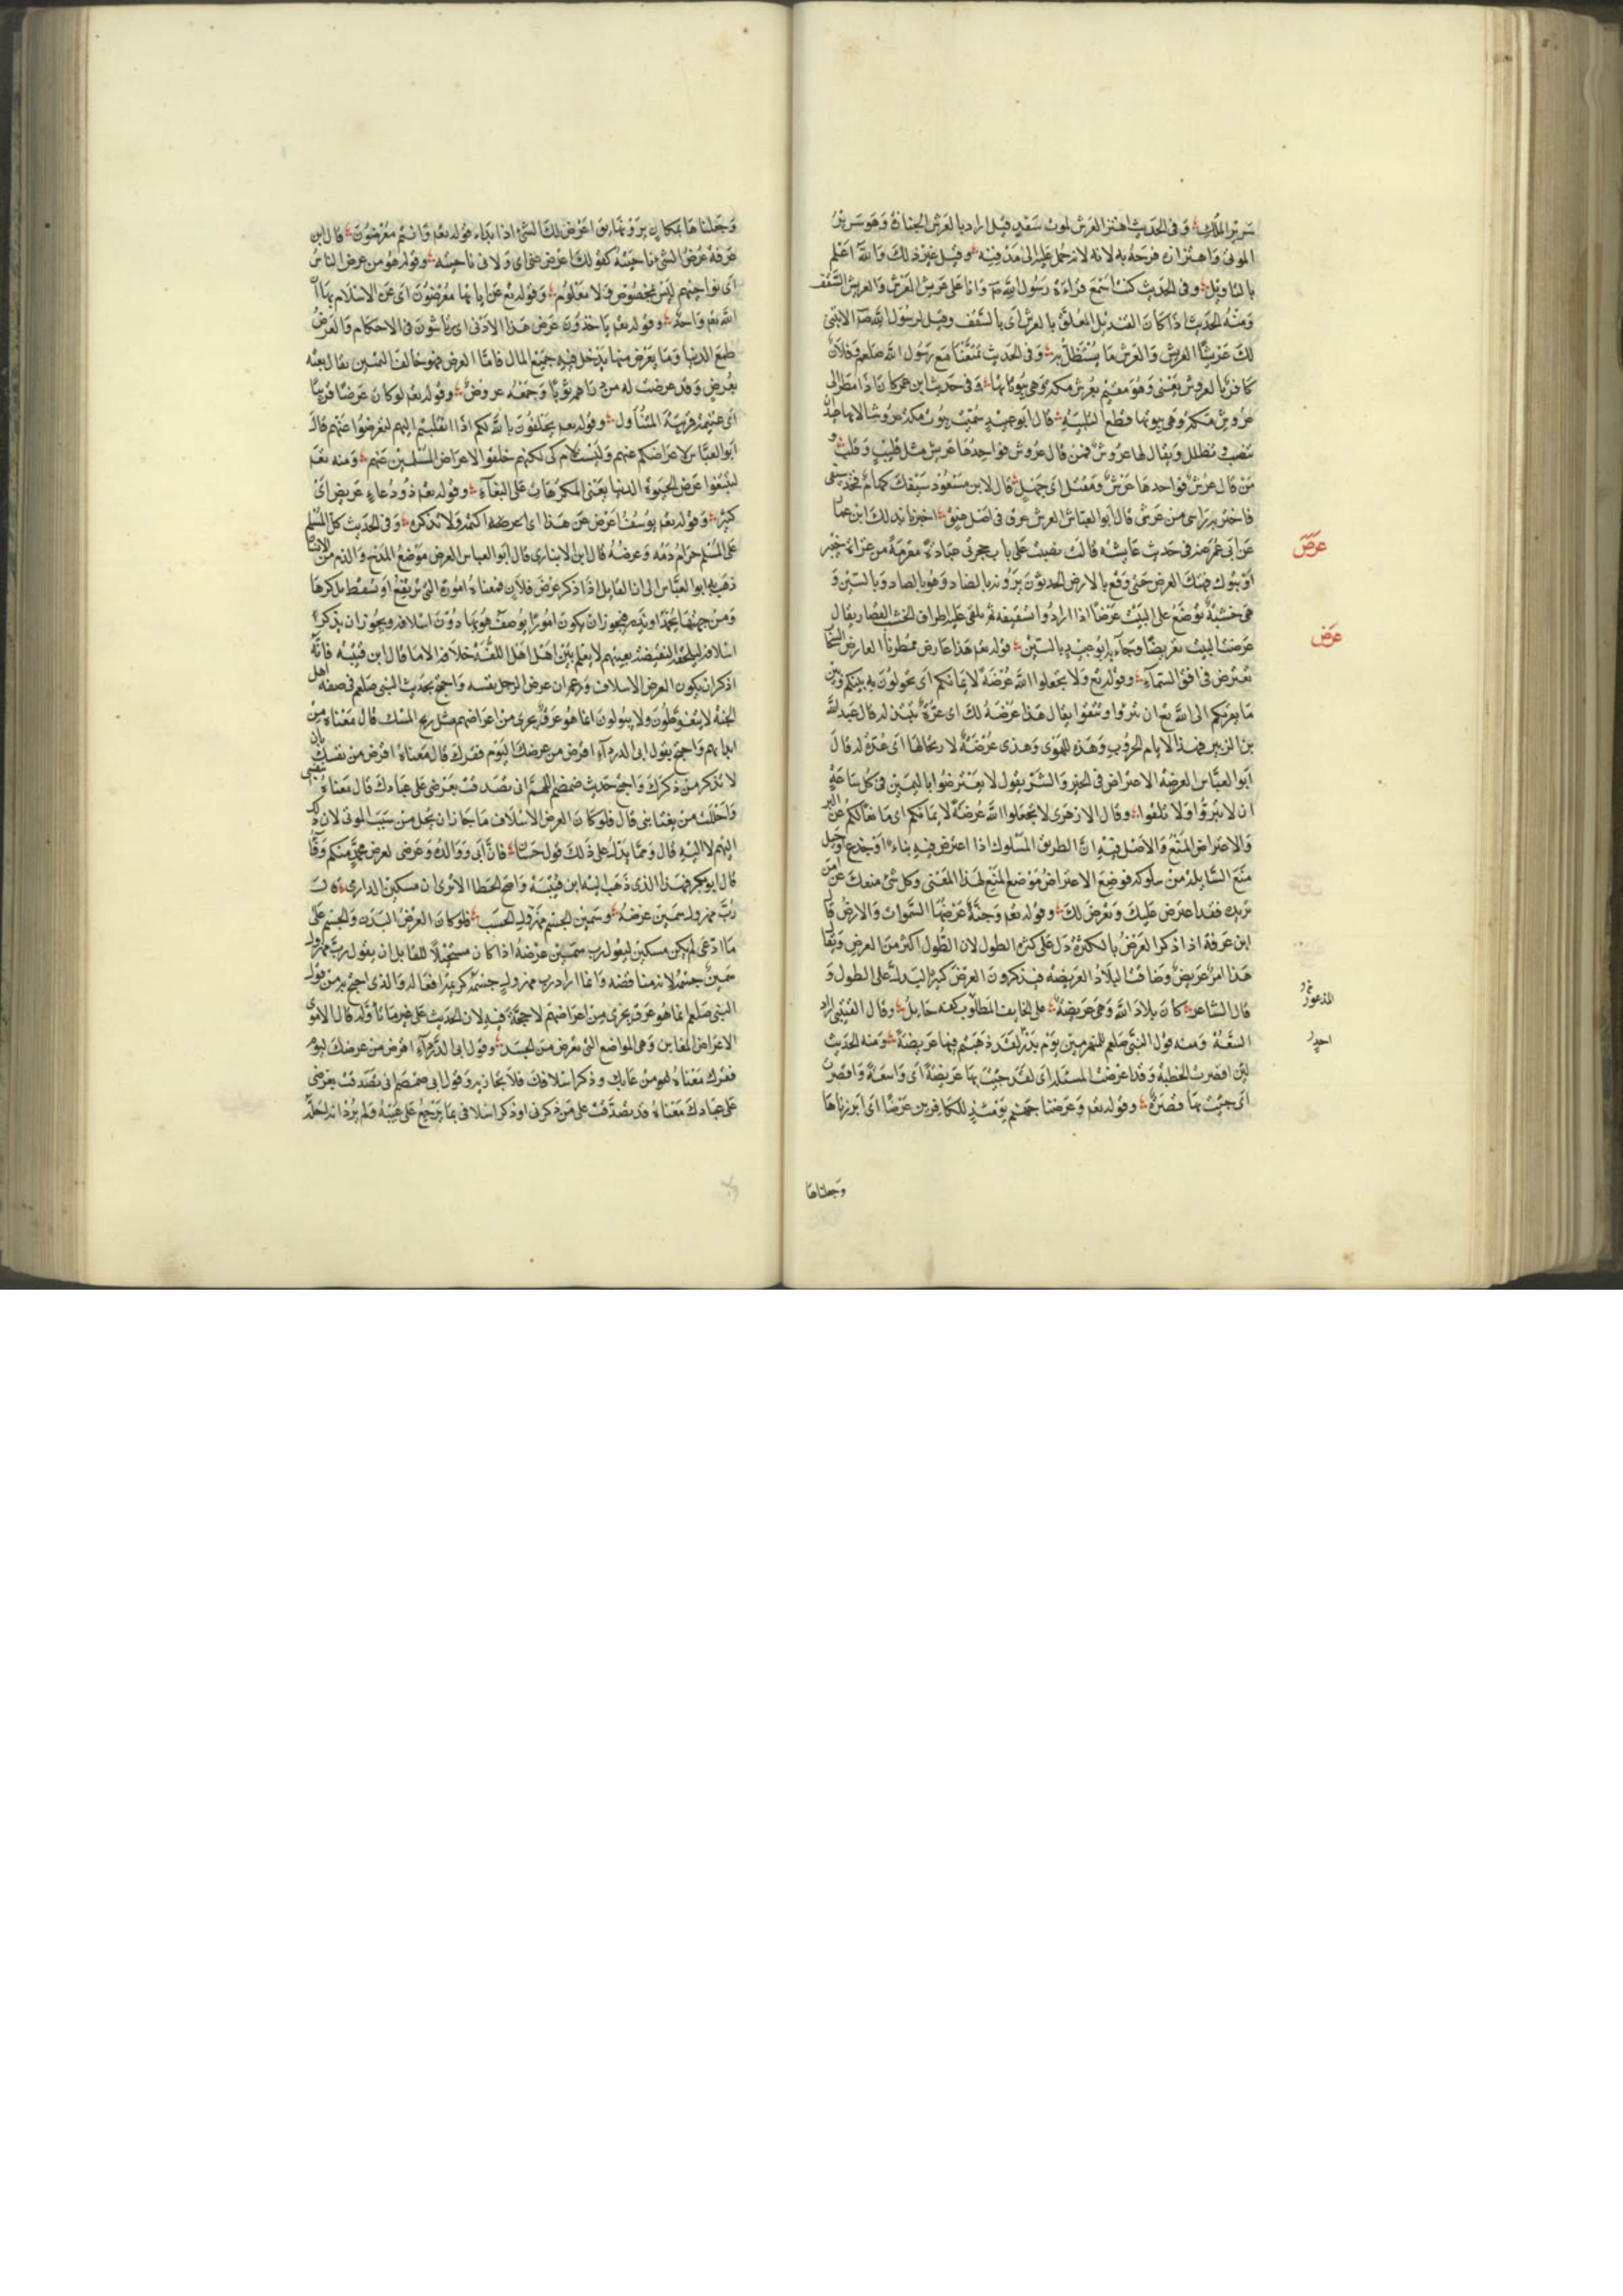 سَرِيرُ المَلِك وَفى الحَديث اهتز العَرش لموت سَعْد قيل اراد بالعَرش الجنازة وَهوَ سَرِيرُ
الموتى وَاهتزازه فرحَهُ به لانه لانه حُمل عَليه الى مَدْفنه وقيل غير ذلك وَاللهُ اعلم
بالتاويل وفى الحديث كنت اسمع قراءة رسُول الله وَانا على عَريش العَرش وَالعريش السَّقف
وَمنه الحديث اذ كانَ القنديل المعَلّق بالعرش اى بالسَّقف وقيل لرسُول الله الا نبنى
لك عَريشًا العَريش وَالعرش مَا يُسْتظلُّ به وَفى الحديث تمتعنا مَع رَسُول الله صلعم وَفلان
كافر بالعروش يَعْنى وَهُوَ مقيم بعُرش مكة وهى بيُوتها وَفى حَديث ابن عمر كانَ اذا نظر الى
عرُوش مكة وهى بيوتها قطع التلبية قال ابو عبيد سُمّيت بيُوت مكة عروشا لانها عيدان
تنصب وتظلل وَيقال لها عرُوشٌ فمن قال عرُوش فواحدها عَريش مثل قليب وَقلب و
مَن قالَ عُرش فواحدها عَرْش وفى مقتل ابى جهل قالَ لابن مسعُود سَيْفك كهام فخذ سيفى
فاحتز به راسى من عَرشى قالَ ابو العباس العرش عرق فى اصل عنق اخبرنا بذلك ابن عمار
عَن ابى عمر عنه فى حَديث عايشة قالت نصبت على باب حجرتى عباءة مقرمة من غزاة خيبر
اوْ تبُوك فهتك العرض حَتى وَقع بالارض المحدثون يَرْوُنه بالضاد وَهوَ بالصاد وَبالسّين وَ
هى خشبة تُوضع على البَيْت عَرضًا اذا ارادُوا تسقيفه ثم تلقى عليه اطراف الخشب القصار يقال
عَرصتُ البيت تعريصًا وَجاء به ابُو عبيد بالسّين قوله تعَ هَذا عَارض ممطرنا العارض السّحاب
يَعْترض فى افق السّماء وقوله تع وَلا تجعلوا الله عُرضَة لايمانكم اى يحولُون به بَينكم وَبين
مَا يقرّبكم الى الله تع ان تبرّوا وتتّقوا يقال هَذا عُرضَةُ لك اى عدّة تبتذله قالَ عَبد الله
بن الزبير فهذا الايام الحرُوب وَهَذه للهوى وَهذى عُرْضَةُ لارتحالها اى عُدّة له قالَ
ابَو العبَّاس العرضَة الاعتراض فى الخير وَالشر يقول لا يعترضُوا باليمين فى كل سَاعَة
ان لا تبَرّوا وَلا تتقوا وقال الازهرى لا تجعلوا الله عُرضَة لايمانكم اى مَانعًا لكم عَن البر
وَالاعتراض المَنع وَالاصْل فيه ان الطريق المَسْلوك اذا اعترض فيه بناءٌ اوْ جذع اوجَبل
مَنع السَّابلة من سلوكه فوضع الاعتراضُ مَوضع المَنع لهذا المَعْنى وكل شئ منعك عن امر
تريده فقد اعترض عَليك وَتَعَرّض لك وقوله تع وَجنّةٍ عَرْضُها السَّموات وَالارض قال
ابن عَرفة اذا ذكر العَرْضُ بالكثرة دَل على كثرة الطول لان الطُول اكثر من العرض وَيقال
هَذا امْرٌ عَريضٌ وضاقت البلاد العريضة فيذكرون العَرْض كثيرا ليدل على الطول وَ
قال الشاعر كانَ بلادَ الله وَهى عَريضَةٌ على الخائف المطلوب كفة حَابل وقال القتيبى اراد
السعة وَمنه قول النبى صلعم للمنهزمين يَوْم بَدْر لقد ذهَبتم فيها عَريضَة وَمنه الحديث
لئن اقصرت الخطبة وَقد اعرضت المسئلة اى لقد جئت بها عَريضَة اى وَاسعَة وَاقصَرت
اى جئت بها قَصيرة وقوله تع وَعَرضنا جهنم يَوْمئذ للكافرين عَرْضًا اى ابرزناها
عَرَصَ
عَرَض
وجعلناها
وَجَعَلناهَا بمكان يَرَوْنها يقال اعْرَض لك الشئ اذا بَدَا وقوله تع وَانتم مُعْرضُون قال ابن
عَرفة عُرْضُ الشئ ناحيَتهُ كقولك اعْرض عنى اى وَلانى ناحيته وقوله هوَ من عرض الناس
اى نوَاحيهم ليسَ بمخصُوص وَلا معْلوُم وَقوله تع عَن اياتها مُعْرضُون اى عَن الاسْتدلال بها
الله تع وَاحدٌ وقوله تع ياخذُون عَرَض هَذا الادْنى اى يرتشون فى الاحكام وَالعَرَضُ
طمَع الدنيا وَمَا يَعْرض منها يَدخل فيه جَميع المال فامّا العرض فهو خالف الثمنين يقال بعته
بعَرْضٍ وَقد عرضت له من حقه ثوْبًا وَجَمْعُه عروضٌ وقوله تع لو كانَ عَرَضًا قريبًا
اى غنيمَة قريبَة المتناول وقوله تع يَحلفون بالله لكم اذا انقلبتم اليهم لتعرضُوا عَنهم قال
ابو العبَّاس لاعراضكم عنهم وَليسَت لام كى لكنهم حَلفوا لاعراض المسْلمين عَنهم وَمنه تعَ
لتبتَغوا عَرَض الحيوة الدنيا يَعْنى المكرهَات على البغآء وقوله تع ذو دعاءٍ عَريض اى
كثير وَقوله تع يُوسُف اعْرض عَن هَذا اى اعرضه اكتمه وَلا تذكره وَفى الحديث كل المُسْلم
على المُسْلم حَرام دَمُه وَعرضُهُ قال ابن الانبارى قال ابو العباس العرض مَوْضع المَدْح وَالذم من الانسان
ذهبَ به ابو العبَّاس الى ان القائل اذا ذكر عِرْض فلان فمعناهُ امورُه التى يَرْتفعُ او يَسْقط بذكرها
وَمن جهَتها يُحْمَدُ او يُذم فيجوز ان يكون امُورًا يُوصَف هُوَ بها دُونَ اسْلافه ويجُوز ان يذكر
اسلافه ليلحقه النقيصَة بعيبهم لا يعلم بَينَ اهَل اهَل اللُغَة خلافه الا مَا قال ابن قتيبَة فانّه
انكر ان يكون العرض الاسلاف وَزعم ان عرض الرجل نفسه وَاحتج بحَديث النبى صلعم فى صفة اهل
الجنة لا يتغوّطُون وَلا يبُولونَ انما هُوَ عَرَقٌ يجرى من اعراضهم مثل ريح المسك قال مَعْناه من
ابدانهم وَاحتج بقول ابى الدردآء اقرض من عرضك ليَوْم فقرك قالَ مَعْناهُ اقرض من نفسك بان
لا تذكر من ذكرك وَاحتج حَديث ضمضم اللهمَّ انى تصَدقت بعَرْضى على عبَادك قال مَعْناهُ بنفسى
وَاحْللت من يغتابنى قال فلو كانَ العرض الاسْلاف مَا جَازَ ان يُحلّ من سَبّ الموتى لان ذلك
اليهم لا اليه قال وَممّا يَدلُّ على ذلك قول حَسَّان فانَّ ابى وَوَالدهُ وَعرضى لعرض محمّدٍ منكم وَقآء
قال ابو بكر فهَذا الذى ذَهَبَ اليه ابن قتيبَة واضح الخطا الا ترى ان مسكين الدارمى قال
رُبّ مهزول سَمين عرضُهُ وسَمين الجسْم مَهْزُول الحَسَب فلو كانَ العرْض البَدَن وَالجسْم على
مَا ادّعَى لم يكن مسكين ليقول رب سَمين عِرْضهُ اذ كانَ مستحيلًا للقائل ان يقول ربّ مهزول
سَمين جسْمُه لانه مناقضة وَانما اراد رب مهزول جسْمُه كريمَة افعاله وَالذى احتجّ به من قول
النبى صلعم انما هُوَ عَرَق يجْرى من اعراضهم لا حجَّةَ فيه لان الحديث على غير مَا تأوله قال الاموى
الاعراض المغابن وَهى المواضع التى تعْرق منَ الجسَد وقول ابى الدّردآء اقرض من عرضك ليوم
فقرك مَعْناهُ من عَابك وذكر اسلافك فلا تجازيه وَقول ابى ضمضم انى تصَدقت بعرضى
على عبادك مَعْناهُ قد تصَدّقتُ على مَن ذكرنى اوْ ذكر اسلافى بمَا يَرْجع على عَيْبُهُ وَلم يُرْد انه احلّه